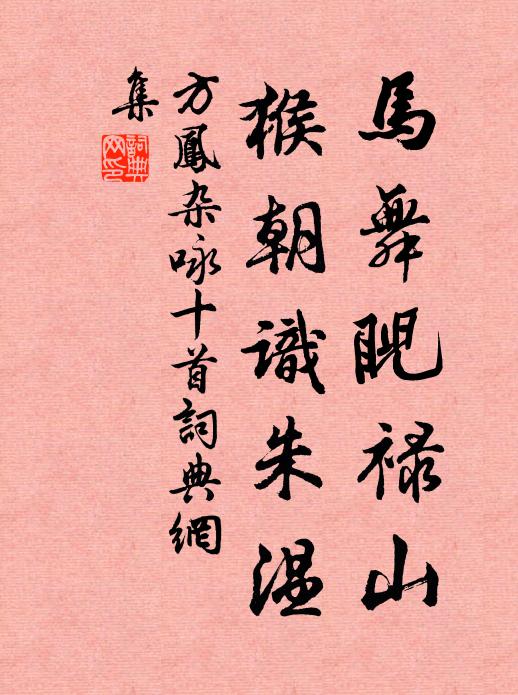 馬舞睨禄山
猴朝識朱温
方鳳杂咏十首詞典網
集
詞典網印